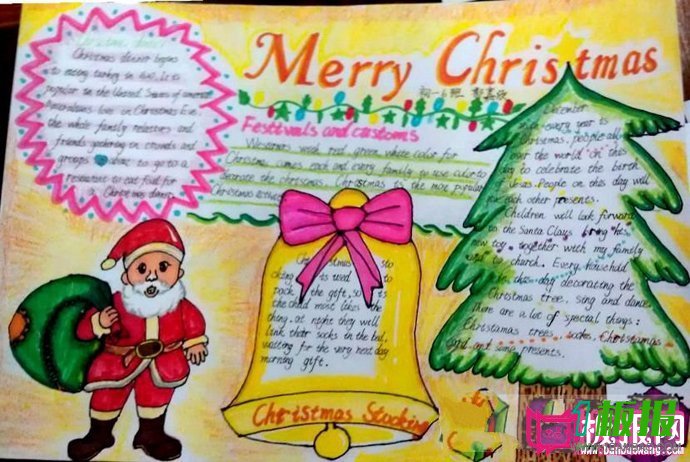 Merry Christmas
初一6班
Christmas dinner
Christmas dinner begins
to eating turkey in
popular in the United States of america
Americans
the whole family relatives and
friends gathering in crowds and
groups to go to a
restaurant to eat food for
a Christmas dinner
Festivals and customs
Westerners red green white color for
Christmas comes each and every family use color to
decorate the christmas. Christmas is the most popular
Christmas
sto
cking is used to
pack the gift, so is
the child most likes the
thing. at night they will
their socks in the
waiting for the very next day
morning gift.
Christmas Stocking
December
every year is
Christmas, people all
over the world on this
day to celebrate the birth
of Jesus. People on this day will
each other presents.
Children will look forward
to the Santa Claus bring
new toy. together with my family
to church. Every household
in this day decorating the
Christmas tree. sing and dance.
There are a lot of special things:
Christamas trees, socks, Christamas
and some presents.
板报
板报网
www.banbaowang.com